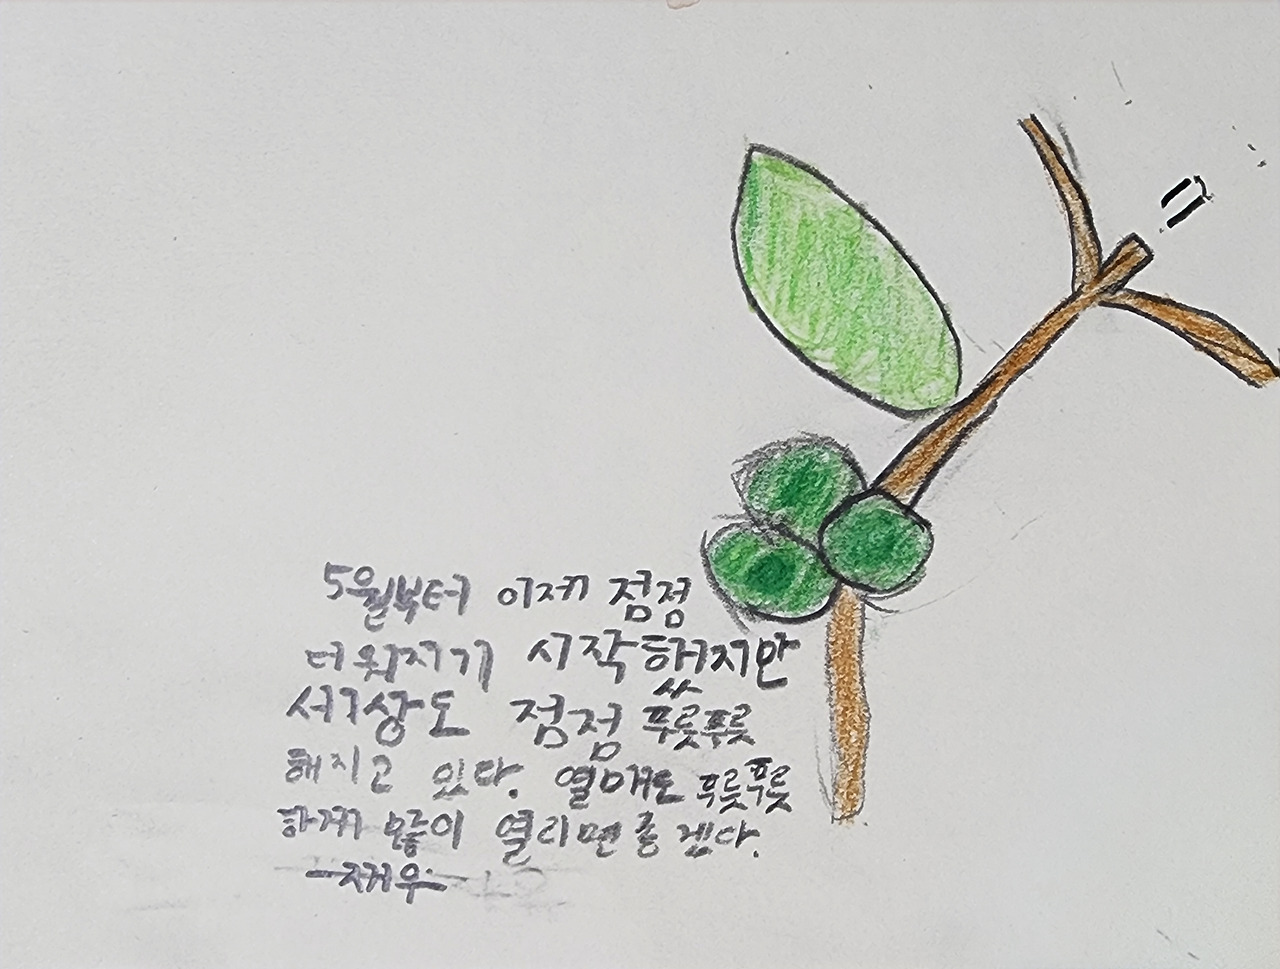 5월부터 이제 점점
더워지기 시작했지만
세상도 점점 푸릇푸릇
해지고 있다. 열매도 푸릇푸릇
하게 많이 열리면 좋겠다.
-재우-